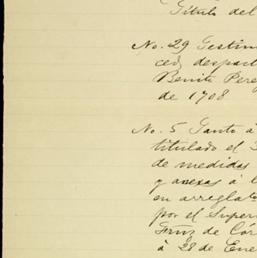 Título del
No. 29 Testim
ced, despac
Benito Pere
de 1708
No. 5 Tanto á
titulado el
de medidas
y anexas á l
en arreglat
por el Super
Frnz de Cór
á 28 de Ene